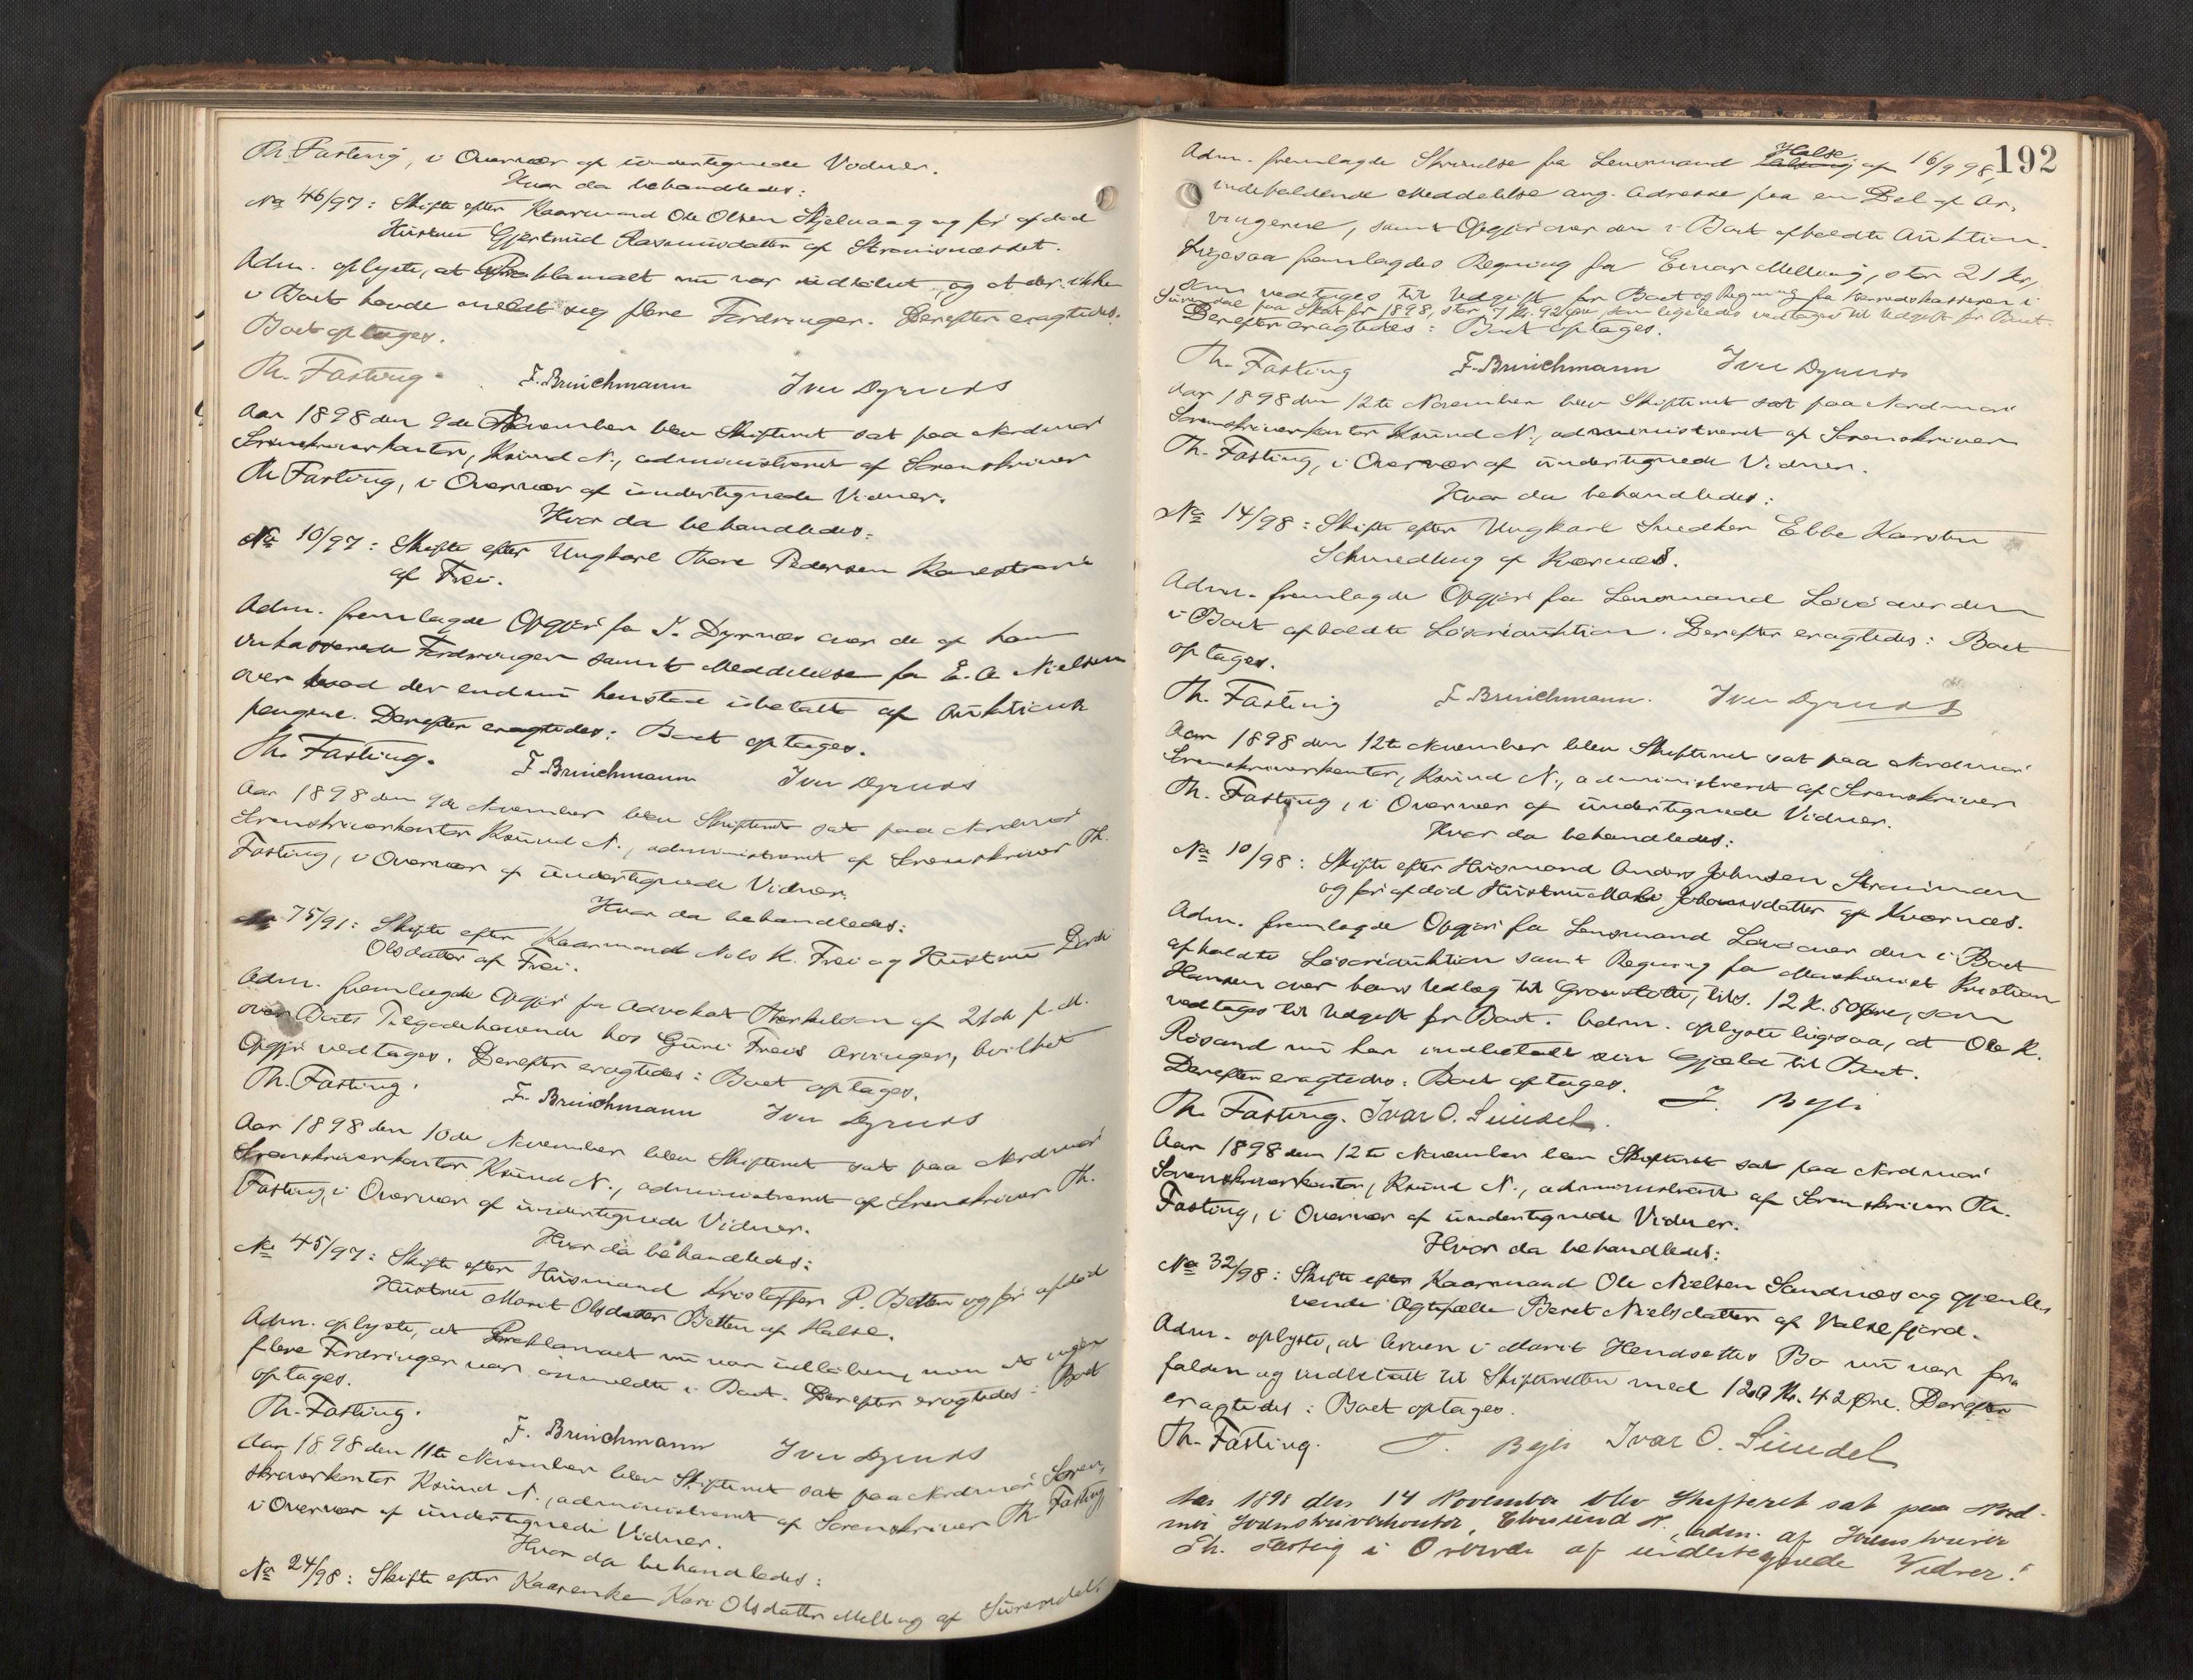 Th. Fasting, i Overvær af undertegnede Vidner.
Hvor da behandledes:
No 46/97: Skifte efter Kaarmand Ole Olsen Skjelvaag og før afdød
Hustru Gjertrud Rasmusdatter af Straumsnesset.
Adm. oplyste, at Proklamaet nu var udløbet, og at der ikke
i Boet havde meldt sig flere Fordringer. Derefter eragtedes:
Boet optages.
Th. Fasting. F. Brinchmann Iver Dyrnes
Aar 1898 den 9de November blev Skifteret sat paa Nordmør
Sorenskriverkontor, Ksund N., administreret af Sorenskriver
Th Fasting, i Overvær af undertegnede Vidner.
Hvor da behandledes:
No 10/97: Skifte efter Ungkarl Thore Pedersen Kanestrøm
af Frei.
Adm. fremlagde Opgjør fra I. Dyrnæs over de af ham
inkasserede Fordringer samt Meddelelse fra E. A. Nielsen
over hvad der endnu henstod ubetalt af Auktions
pengene. Derefter eragtedes: Boet optages.
Th. Fasting. F. Brinchmann Iver Dyrnes
Aar 1898 den 9de November blev Skifteret sat paa Nordmør
Sorenskriverkontor Ksund N., administreret af Sorenskriver Th.
Fasting, i Overvær af undertegnede Vidner.
Hvor da behandledes:
No 75/91: Skifte efter Kaarmand Nils K. Frei og Hustru
Olsdatter af Frei.
Adm. fremlagde Opgjør fra Advokat Thorkelsen af 21de f. M.
over Boets Tilgodehavende hos Guri Freis Arvinger, hvilket
Opgjør vedtages. Derefter eragtedes: Boet optages.
Th. Fasting. F. Brinchmann Iver Dyrnes
Aar 1898 den 10de November blev Skifteret sat paa Nordmør
Sorenskriverkontor Ksund N., administreret af Sorenskriver Th.
Fasting, i Overvær af undertegnede Vidner.
Hvor da behandledes:
No 45/97: Skifte efter Husmand Kristoffer P. Betten og før afdød
Hustru Marit Olsdatter Betten af Halse.
Adm. oplyste, at Proklamaet nu var udløbet, men at ingen
flere Fordringer var anmeldte i Boet. Derefter eragtedes: Boet
optages.
Th. Fasting. F. Brinchmann Iver Dyrnes
Aar 1898 den 11te November blev Skifteret sat paa Nordmør Soren-
skriverkontor Ksund N., administreret af Sorenskriver Th Fasting,
i Overvær af undertegnede Vidner.
Hvor da behandledes:
No 24/98: Skifte efter Kaarenke Kari Olsdatter Melling af Surendal.
192
Adm. fremlagde Skrivelse fra Lensmand Halse af 16/9 98,
indeholdende Meddelelse ang. Adresse paa en Del af Ar-
vingerne, samt Opgjør over den i Boet afholdte Auktion.
Ligesaa fremlagdes Regning fra Einar Melling, stor 21 Kr,
som vedtages til Udgift for Boet og Regning fra Herredskassereren i
Surendal paa Skat for 1898, stor 7 Kr. 92 Øre som ligeledes vedtages til Udgift for Boet.
Derefter eragtedes: Boet optages.
Th. Fasting F. Brinchmann Iver Dyrnes
Aar 1898 den 12te November blev Skifteret sat paa Nordmør
Sorenskriverkontor Ksund N., administreret af Sorenskriver
Th. Fasting, i Overvær af undertegnede Vidner.
Hvor da behandledes:
No 14/98: Skifte efter Ungkarl Snedker Ebbe Karsten
Schmedling af Kvernes.
Adm. fremlagde Opgjør fra Lensmand Løvø over den
i Boet afholdte Løsøreauktion. Derefter eragtedes: Boet
optages.
Th. Fasting F. Brinchmann. Iver Dyrnes
Aar 1898 den 12te November blev Skifteret sat paa Nordmør
Sorenskriverkontor, Ksund N., administreret af Sorenskriver
Th. Fasting, i Overvær af undertegnede Vidner.
Hvor da behandledes:
No 10/98: Skifte efter Husmand Anders Johnsen Strømmen
og før afdød Hustru Mali Johannesdatter af Kvernæs.
Adm. fremlagde Opgjør fra Lensmand Løvø over den i Boet
afholdte Løsøreauktion samt Regning fra Maskinist Kristian
Hansen over hans Udlæg til Gravstøtte, tils. 12 K. 50 Øre, som
vedtages til Udgift for Boet. Adm. oplyste ligesaa, at Ole K.
Røsand nu har indbetalt sin Gjæld til Boet.
Derefter eragtedes: Boet optages.
Th. Fasting. Ivar O. Sundel. J. Byli
Aar 1898 den 12te November blev Skifteret sat paa Nordmør
Sorenskriverkontor, Ksund N., administreret af Sorenskriver Th.
Fasting, i Overvær af undertegnede Vidner.
Hvor da behandledes:
No 32/98: Skifte efter Kaarmand Ole Nielsen Sandnes og gjenle-
vende Ægtefælle Beret Nielsdatter af Valsøfjord.
Adm. oplyste, at Arven i Marit Hendsettes Bo nu var for-
falden og indbetalt til Skifteretten med 120 Kr. 42 Øre. Derefter
eragtedes: Boet optages.
Th. Fasting. J. Byli Ivar O. Sundel
Aar 1898 den 14 November blev Skifteret sat paa Nord-
mør Sorenskriverkontor, Chrsund N., adm. af Sorenskriver
Th. Fasting i Overvær af undertegnede Vidner: